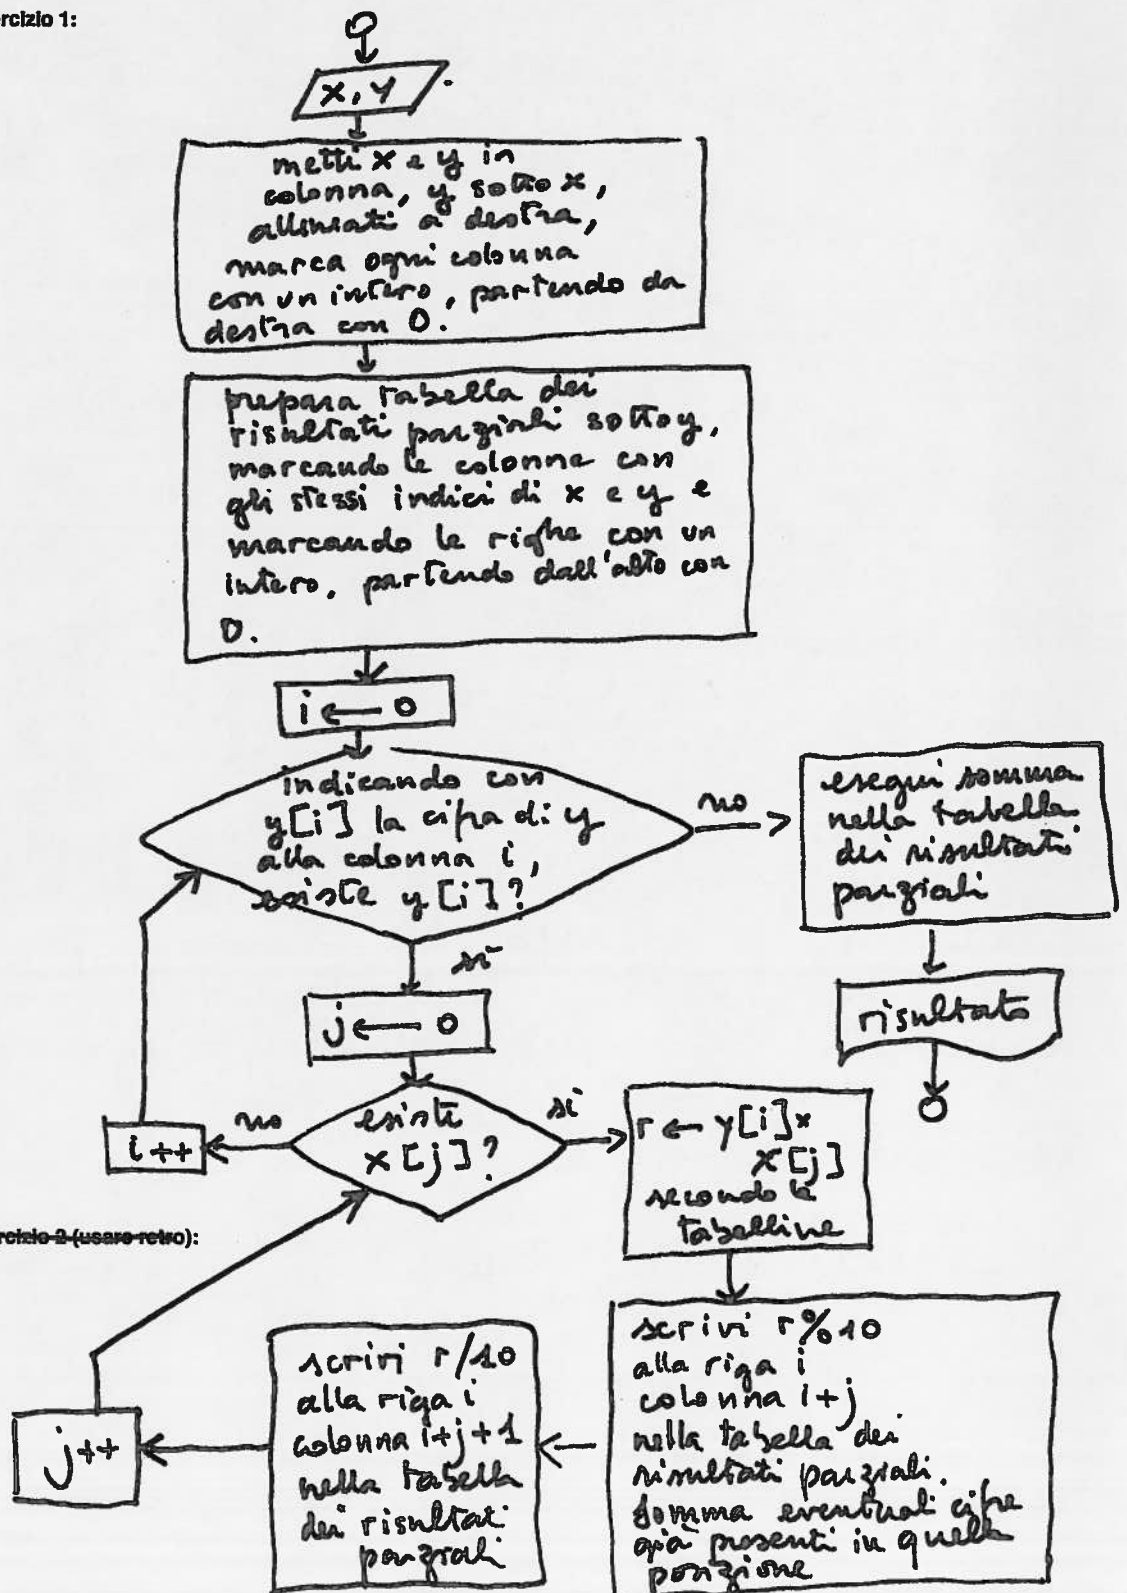 rcizio 1:
x, y
metti x e y in
colonna, y sotto x,
allineati a destra,
marca ogni colonna
con un intero, partendo da
destra con 0.
prepara tabella dei
risultati parziali sotto y,
marcando le colonne con
gli stessi indici di x e y e
marcando le righe con un
intero, partendo dall'alto con
0.
i ← 0
indicando con
y[i] la cifra di y
alla colonna i,
esiste y[i]?
no
esegui somma
nella tabella
dei risultati
parziali
risultato
sì
j ← 0
esiste
x[j]?
no
i++
sì
r ← y[i]×
x[j]
secondo le
tabelline
rcizio 2 (usare retro):
scrivi r%10
alla riga i
colonna i+j
nella tabella dei
risultati parziali.
somma eventuali cifre
già presenti in quella
posizione
scrivi r/10
alla riga i
colonna i+j+1
nella tabella
dei risultati
parziali
j++